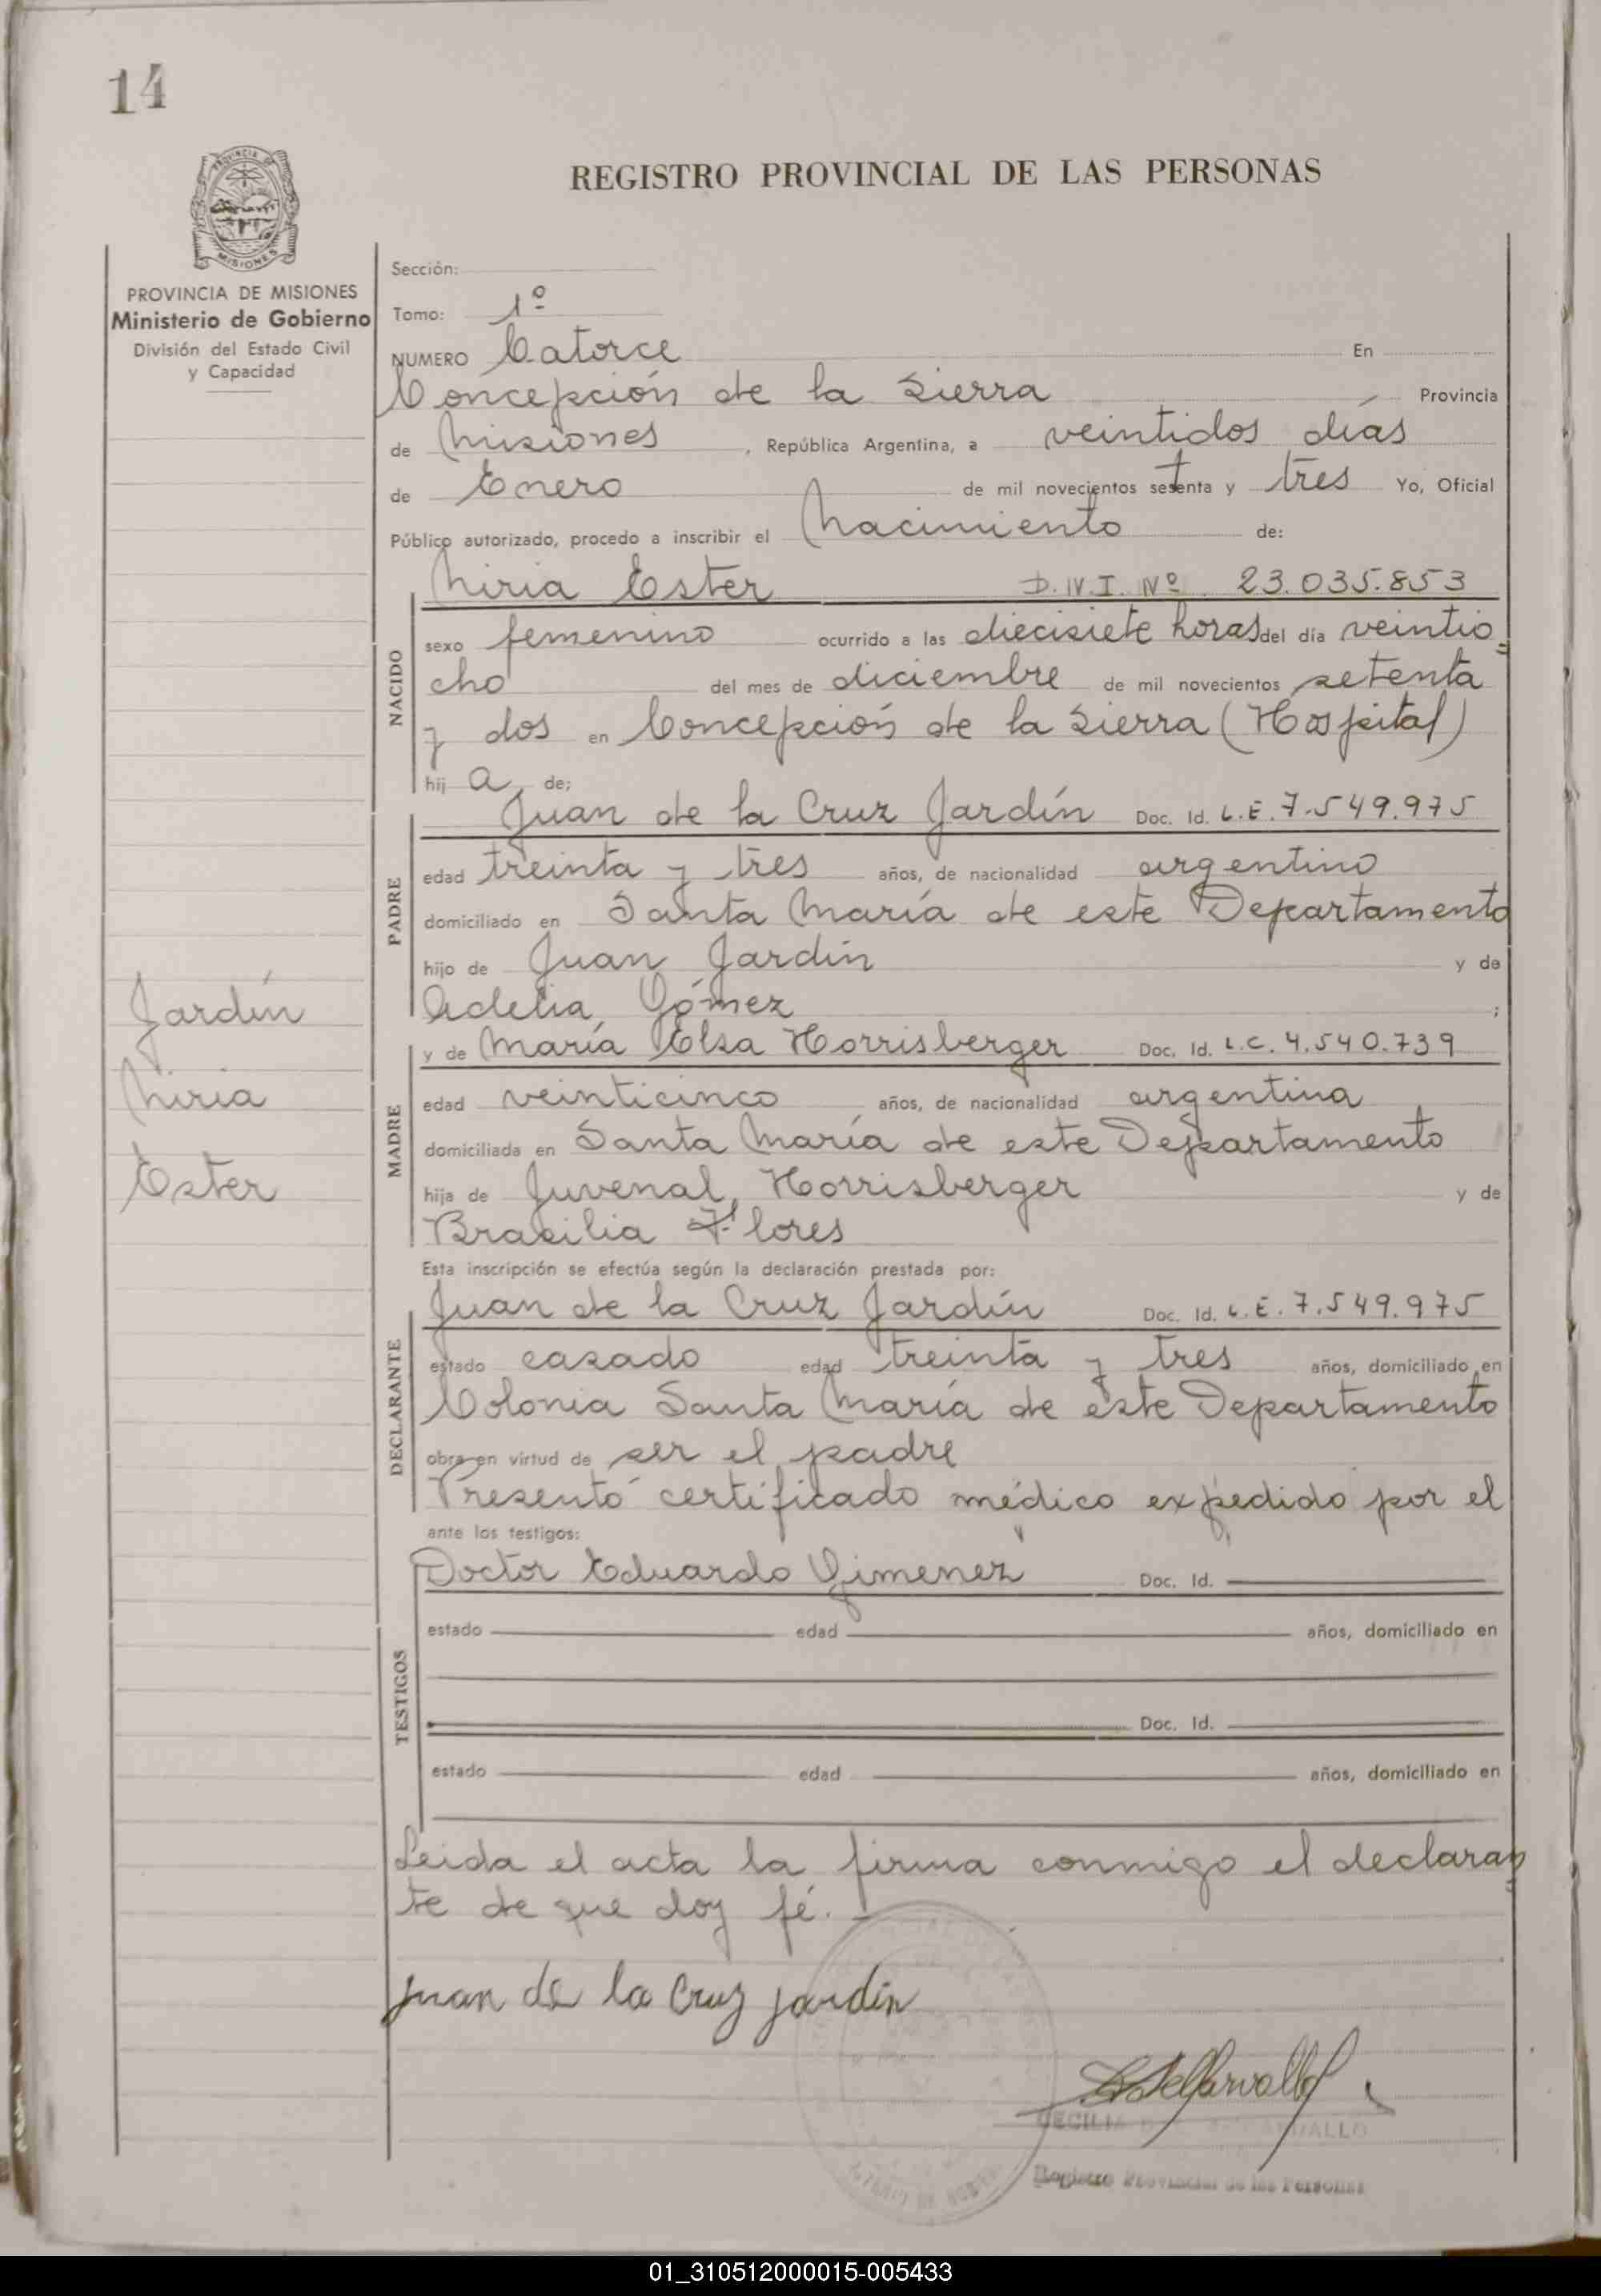 14
REGISTRO PROVINCIAL DE LAS PERSONAS
PROVINCIA DE
MISIONES
PROVINCIA DE MISIONES
Ministerio de Gobierno
División del Estado Civil
y Capacidad
Sección:
Tomo: 1º
NUMERO Catorce En
Concepción de la Sierra Provincia
de Misiones , República Argentina, a veintidos días
de Enero de mil novecientos setenta y tres Yo, Oficial
Público autorizado, procedo a inscribir el Nacimiento de:
Niria Ester D.N.I. Nº 23.035.853
NACIDO
sexo femenino ocurrido a las diecisiete horas del día veintio=
cho del mes de diciembre de mil novecientos setenta
y dos en Concepción de la Sierra (Hospital)
hij a de:
PADRE
Juan de la Cruz Jardín Doc. Id. L.E. 7.549.975
edad treinta y tres años, de nacionalidad argentino
domiciliado en Santa María de este Departamento
hijo de Juan Jardín y de
Adelia Gómez ;
MADRE
y de María Elsa Horrisberger Doc. Id. L.C. 4.540.739
edad veinticinco años, de nacionalidad argentina
domiciliada en Santa María de este Departamento
hija de Juvenal Horrisberger y de
Brasilia Flores
Esta inscripción se efectúa según la declaración prestada por:
DECLARANTE
Juan de la Cruz Jardín Doc. Id. L.E. 7.549.975
estado casado edad treinta y tres años, domiciliado en
Colonia Santa María de este Departamento
obra en virtud de ser el padre
Presentó certificado médico expedido por el
ante los testigos:
TESTIGOS
Doctor Eduardo Gimenez Doc. Id.
estado edad años, domiciliado en
Doc. Id.
estado edad años, domiciliado en
Leida el acta la firma conmigo el declaran=
te de que doy fé.
Juan de la Cruz jardín
CECILIA
Registro Provincial de las Personas
Jardín
Niria
Ester
01_310512000015-005433